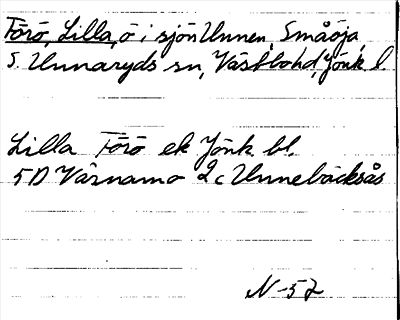 Förö, Lilla, ö i sjön Unnen, Småöja,
S. Unnaryds sn, Västbohd, Jönk l.
Lilla Förö ek Jönk bl.
5D Värnamo 2c Unnebäcksås
N-57